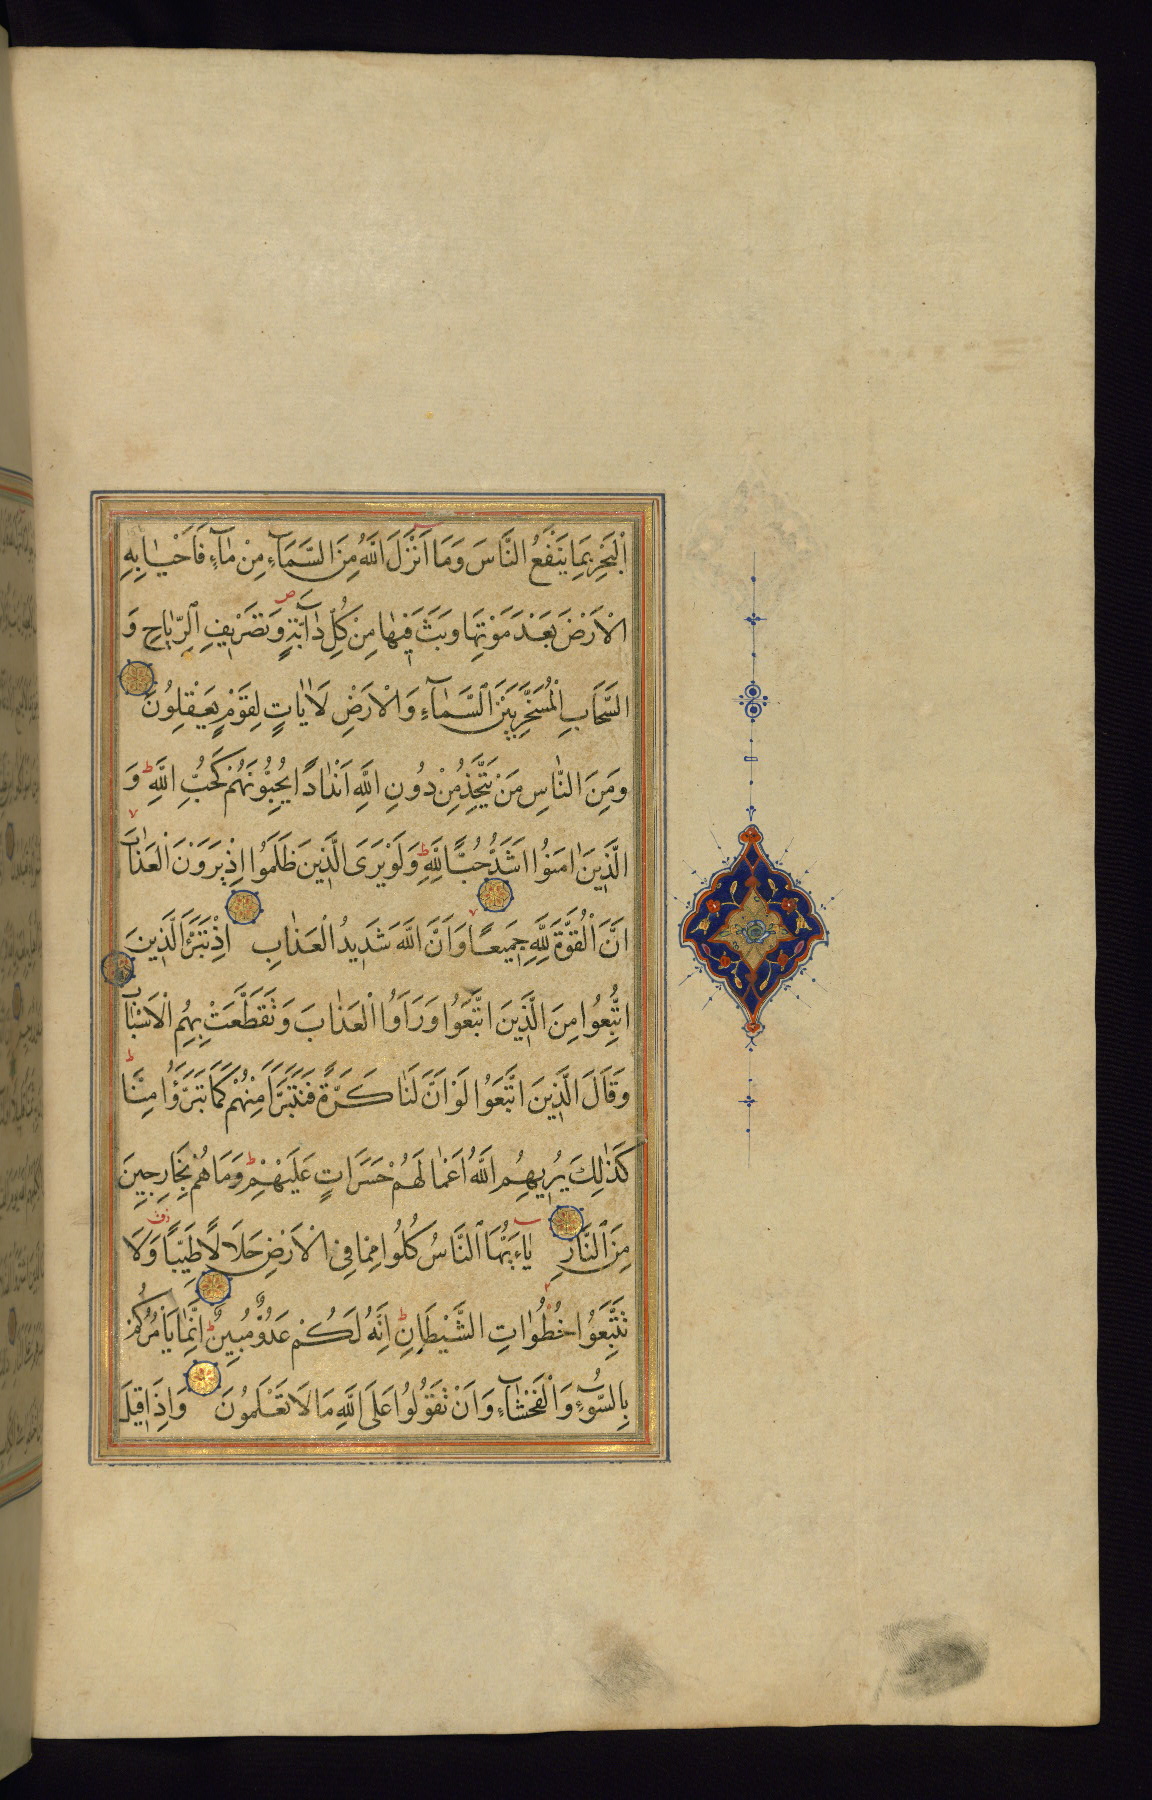 الْبَحْرِ بِمَا يَنْفَعُ النَّاسَ وَمَا اَنْزَلَ اللّٰهُ مِنَ السَّمَآءِ مِنْ مَآءٍ فَاَحْيَا بِهِ
الْاَرْضَ بَعْدَ مَوْتِهَا وَبَثَّ فِيهَا مِنْ كُلِّ دَآبَّةٍ ص وَتَصْرِيفِ الرِّيَاحِ وَ
السَّحَابِ الْمُسَخَّرِ بَيْنَ السَّمَآءِ وَالْاَرْضِ لَاٰيَاتٍ لِقَوْمٍ يَعْقِلُونَ
وَمِنَ النَّاسِ مَنْ يَتَّخِذُ مِنْ دُونِ اللّٰهِ اَنْدَادًا يُحِبُّونَهُمْ كَحُبِّ اللّٰهِ ط وَ
الَّذِينَ اٰمَنُوا اَشَدُّ حُبًّا لِلّٰهِ ط وَلَوْ يَرَى الَّذِينَ ظَلَمُوا اِذْ يَرَوْنَ الْعَذَابَ
اَنَّ الْقُوَّةَ لِلّٰهِ جَمِيعًا وَاَنَّ اللّٰهَ شَدِيدُ الْعَذَابِ اِذْ تَبَرَّاَ الَّذِينَ
اتُّبِعُوا مِنَ الَّذِينَ اتَّبَعُوا وَرَاَوُا الْعَذَابَ وَتَقَطَّعَتْ بِهِمُ الْاَسْبَابُ
وَقَالَ الَّذِينَ اتَّبَعُوا لَوْ اَنَّ لَنَا كَرَّةً فَنَتَبَرَّاَ مِنْهُمْ كَمَا تَبَرَّؤُا مِنَّا ط
كَذٰلِكَ يُرِيهِمُ اللّٰهُ اَعْمَالَهُمْ حَسَرَاتٍ عَلَيْهِمْ ط وَمَا هُمْ بِخَارِجِينَ
مِنَ النَّارِ يَآءَيُّهَا النَّاسُ كُلُوا مِمَّا فِى الْاَرْضِ حَلَالًا طَيِّبًا وَلَا
تَتَّبِعُوا خُطُوَاتِ الشَّيْطَانِ ط اِنَّهُ لَكُمْ عَدُوٌّ مُبِينٌ اِنَّمَا يَاْمُرُكُمْ
بِالسُّوٓءِ وَالْفَحْشَآءِ وَاَنْ تَقُولُوا عَلَى اللّٰهِ مَا لَا تَعْلَمُونَ وَاِذَا قِيلَ